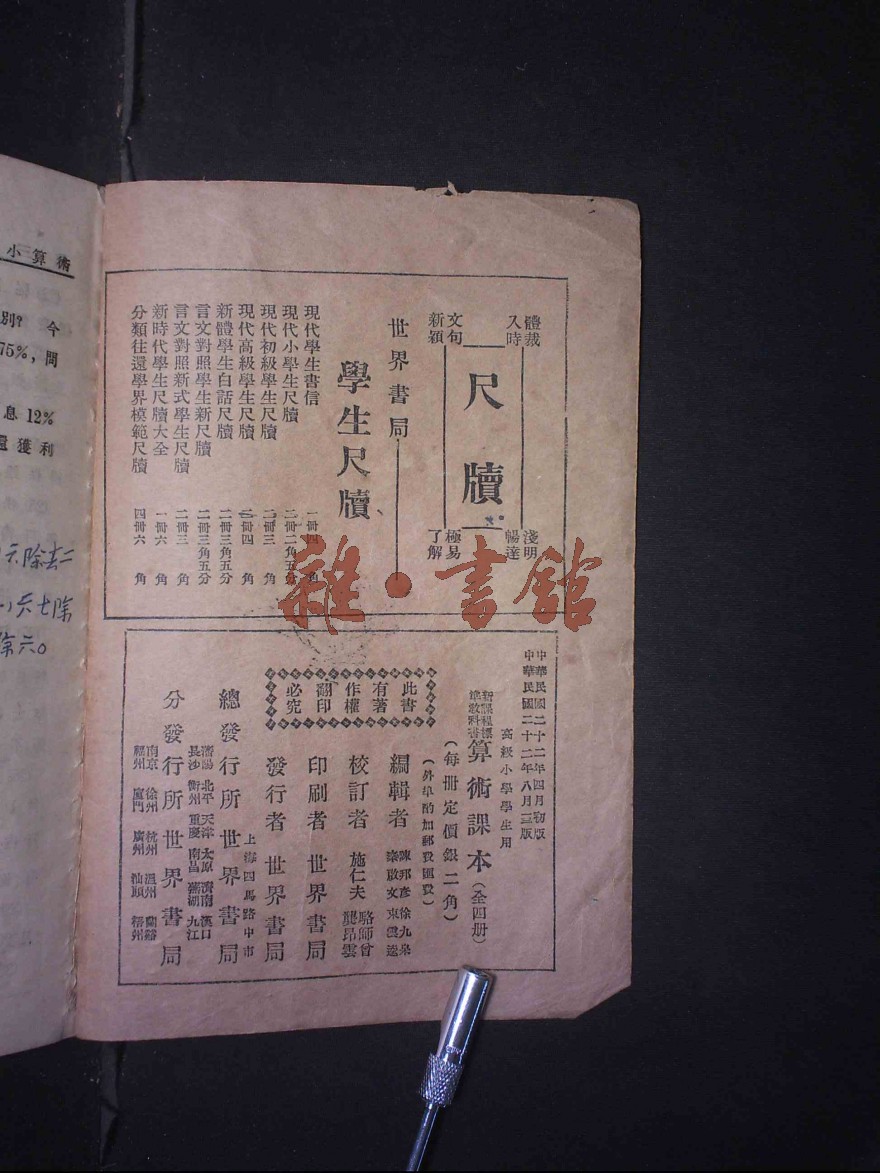 小算術
別？ 今
75%，問
息12%
還獲利
體裁
入時
尺牘
淺明
暢達
文句
新穎
極易
了解
世界書局
學生尺牘
現代學生書信 一冊四角
現代小學生尺牘 二冊二角五分
現代初級學生尺牘 二冊三角
現代高級學生尺牘 二冊四角
新體學生白話尺牘 二冊三角五分
言文對照學生新尺牘 二冊三角五分
言文對照新式學生尺牘 二冊三角
新時代學生尺牘大全 一冊六角
分類往還學界模範尺牘 四冊六角
雜·書館
中華民國二十二年四月初版
中華民國二十二年八月三版
高級小學學生用
新課程標準教科書
算術課本（全四冊）
（每冊定價銀二角）
（外埠酌加郵費匯費）
編輯者 陳邦彥 徐九皋
東雲逵
校訂者 施仁夫 駱師曾
龔昂雲
印刷者 世界書局
發行者 世界書局
上海四馬路中市
總發行所 世界書局
瀋陽 北平 天津 太原 濟南 漢口
長沙 衡州 重慶 南昌 蕪湖 九江
分發行所 世界書局
南京 徐州 杭州 溫州 蘭谿
福州 廈門 廣州 汕頭 梧州
此書
有著
作權
翻印
必究